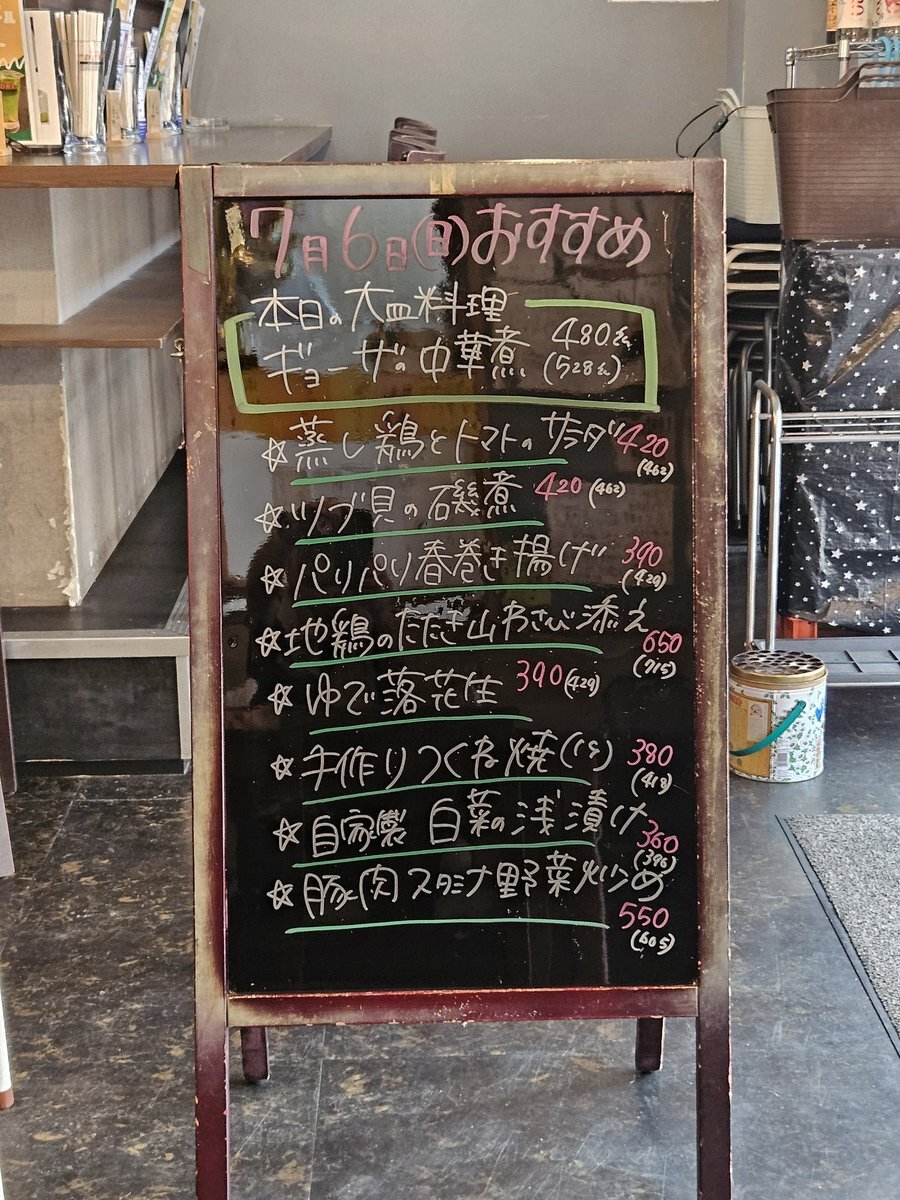 7月6日(日)おすすめ
本日の大皿料理
ギョーザの中華煮 480円 (528円)
☆蒸し鶏とトマトのサラダ 420 (462)
☆ツブ貝の磯煮 420 (462)
☆パリパリ春巻き揚げ 390 (429)
☆地鶏のたたき山わさび添え 650 (715)
☆ゆで落花生 390 (429)
☆手作りつくね焼(1名) 380 (418)
☆自家製 白菜の浅漬け 360 (396)
☆豚肉スタミナ野菜炒め 550 (605)